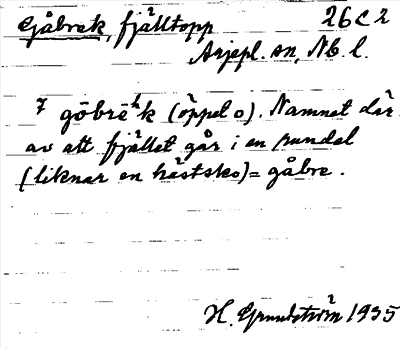 Gåbrek, fjälltopp 26 C 2
Arjepl. sn, Nb. l.
7 gōbrēʰk (öppet o). Namnet där
av att fjället går i en rundel
(liknar en hästsko) = gåbre.
H. Grundström 1935